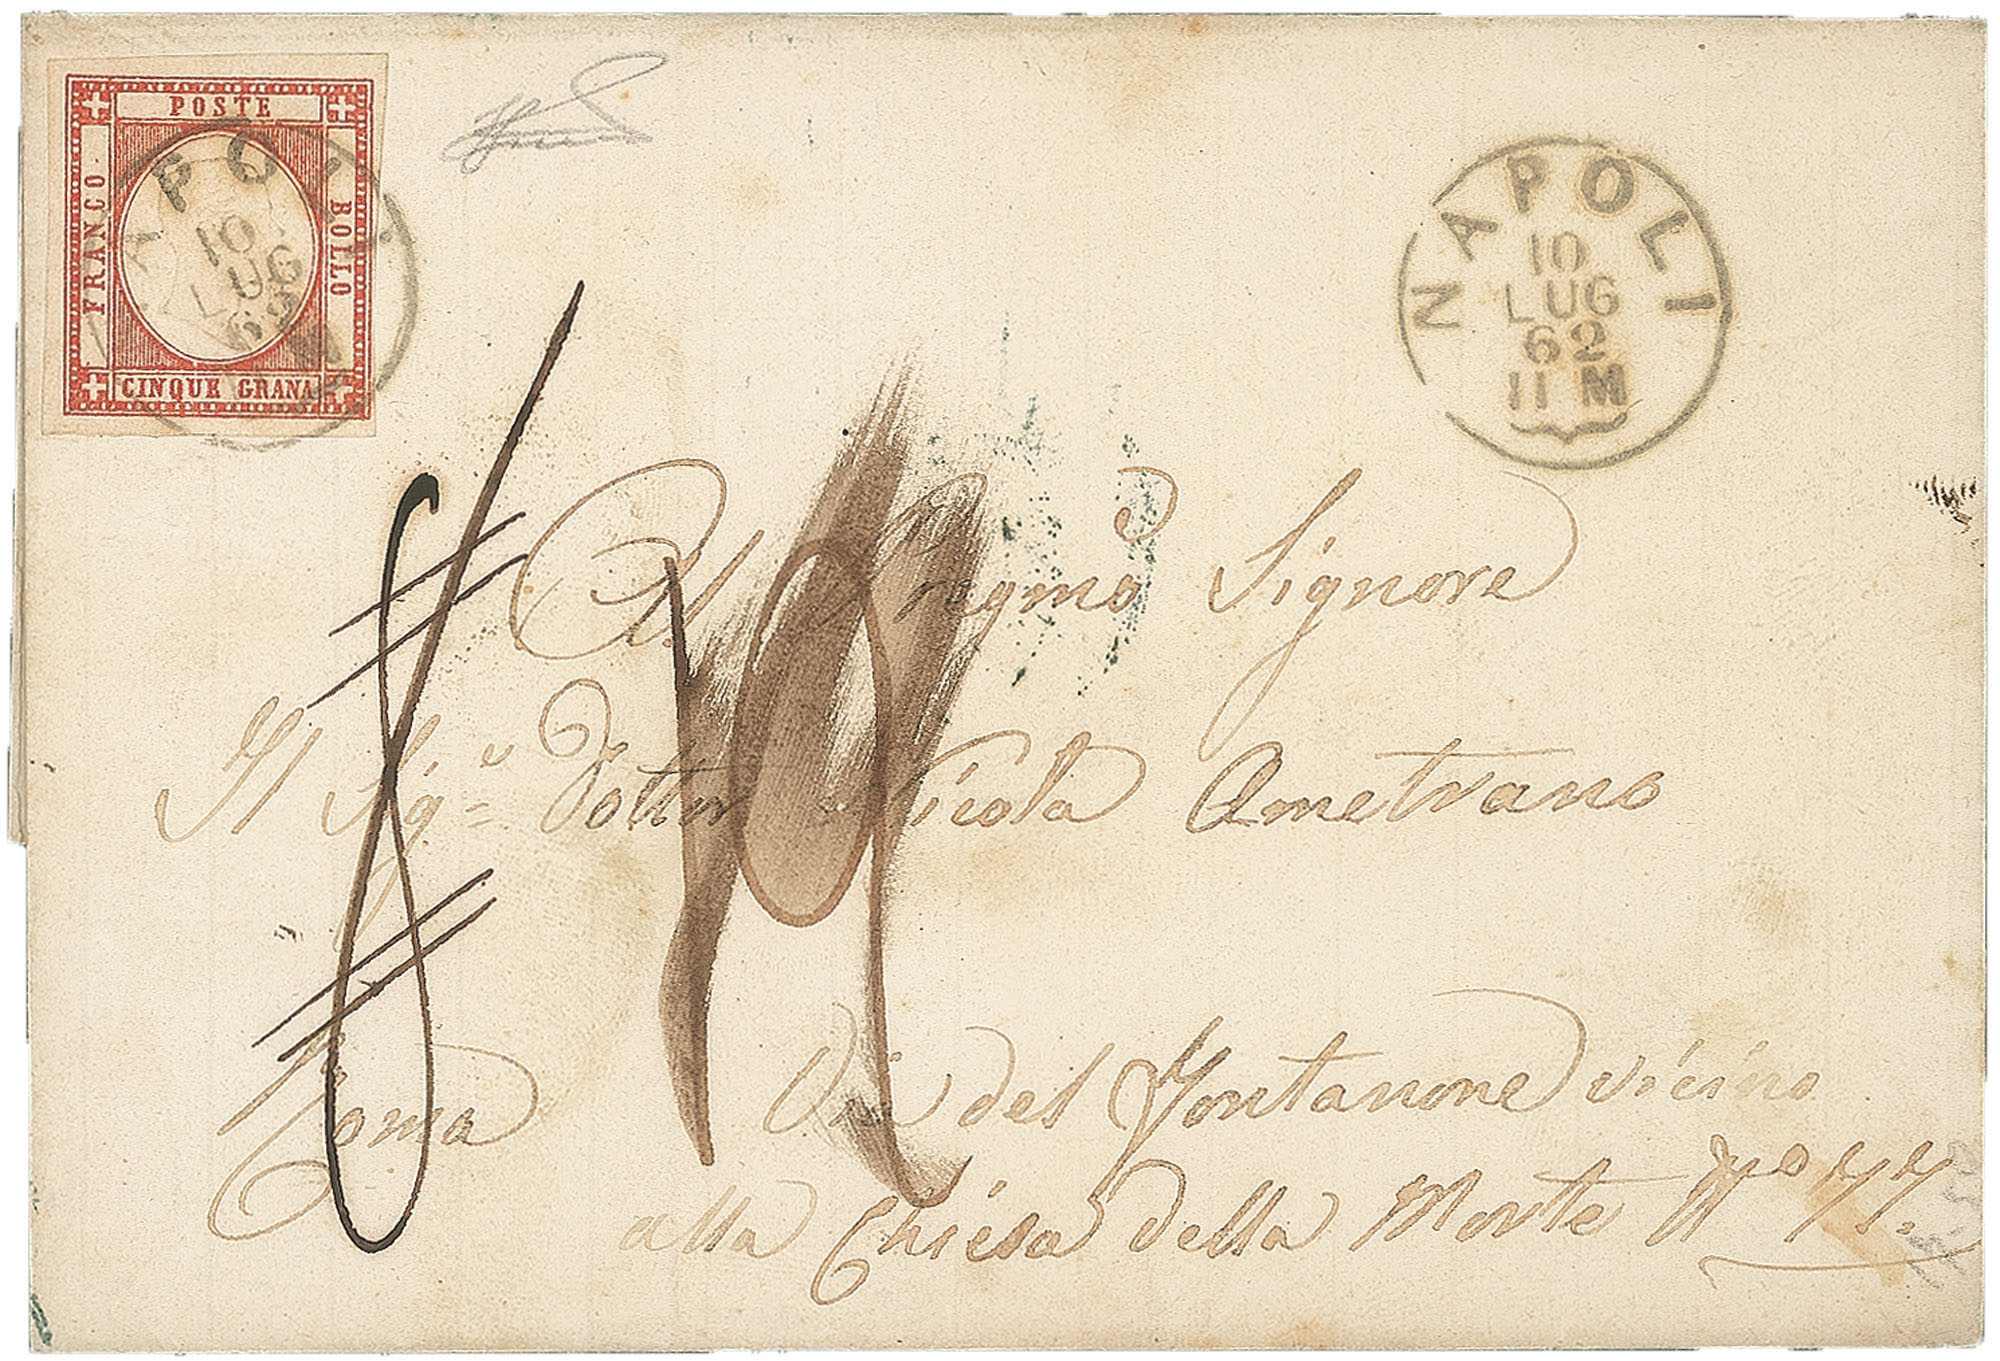 POSTE
FRANCO
BOLLO
CINQUE GRANA
APOLI
10
LUG
62
M
NAPOLI
10
LUG
62
11 M
Al Pregmo Signore
Il Sigre Dottor Nicola Ametrano
Roma
Via del Fontanone vicino
alla Chiesa della Morte No 77.